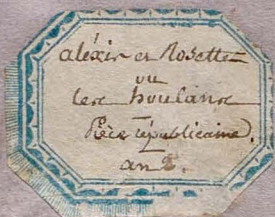 aléxis et Rosette
ou
les houlans
Pièce républicaine.
an 2.